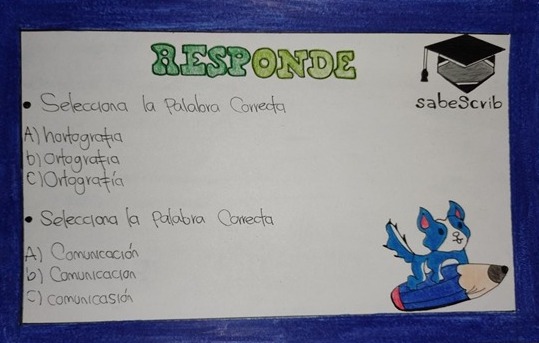 RESPONDE
sabeScrib
• Selecciona la Palabra Correcta
A) hortografia
b) ortografia
C) Ortografía
• Selecciona la Palabra Correcta
A) Comunicación
b) Comunicacion
C) comunicasión